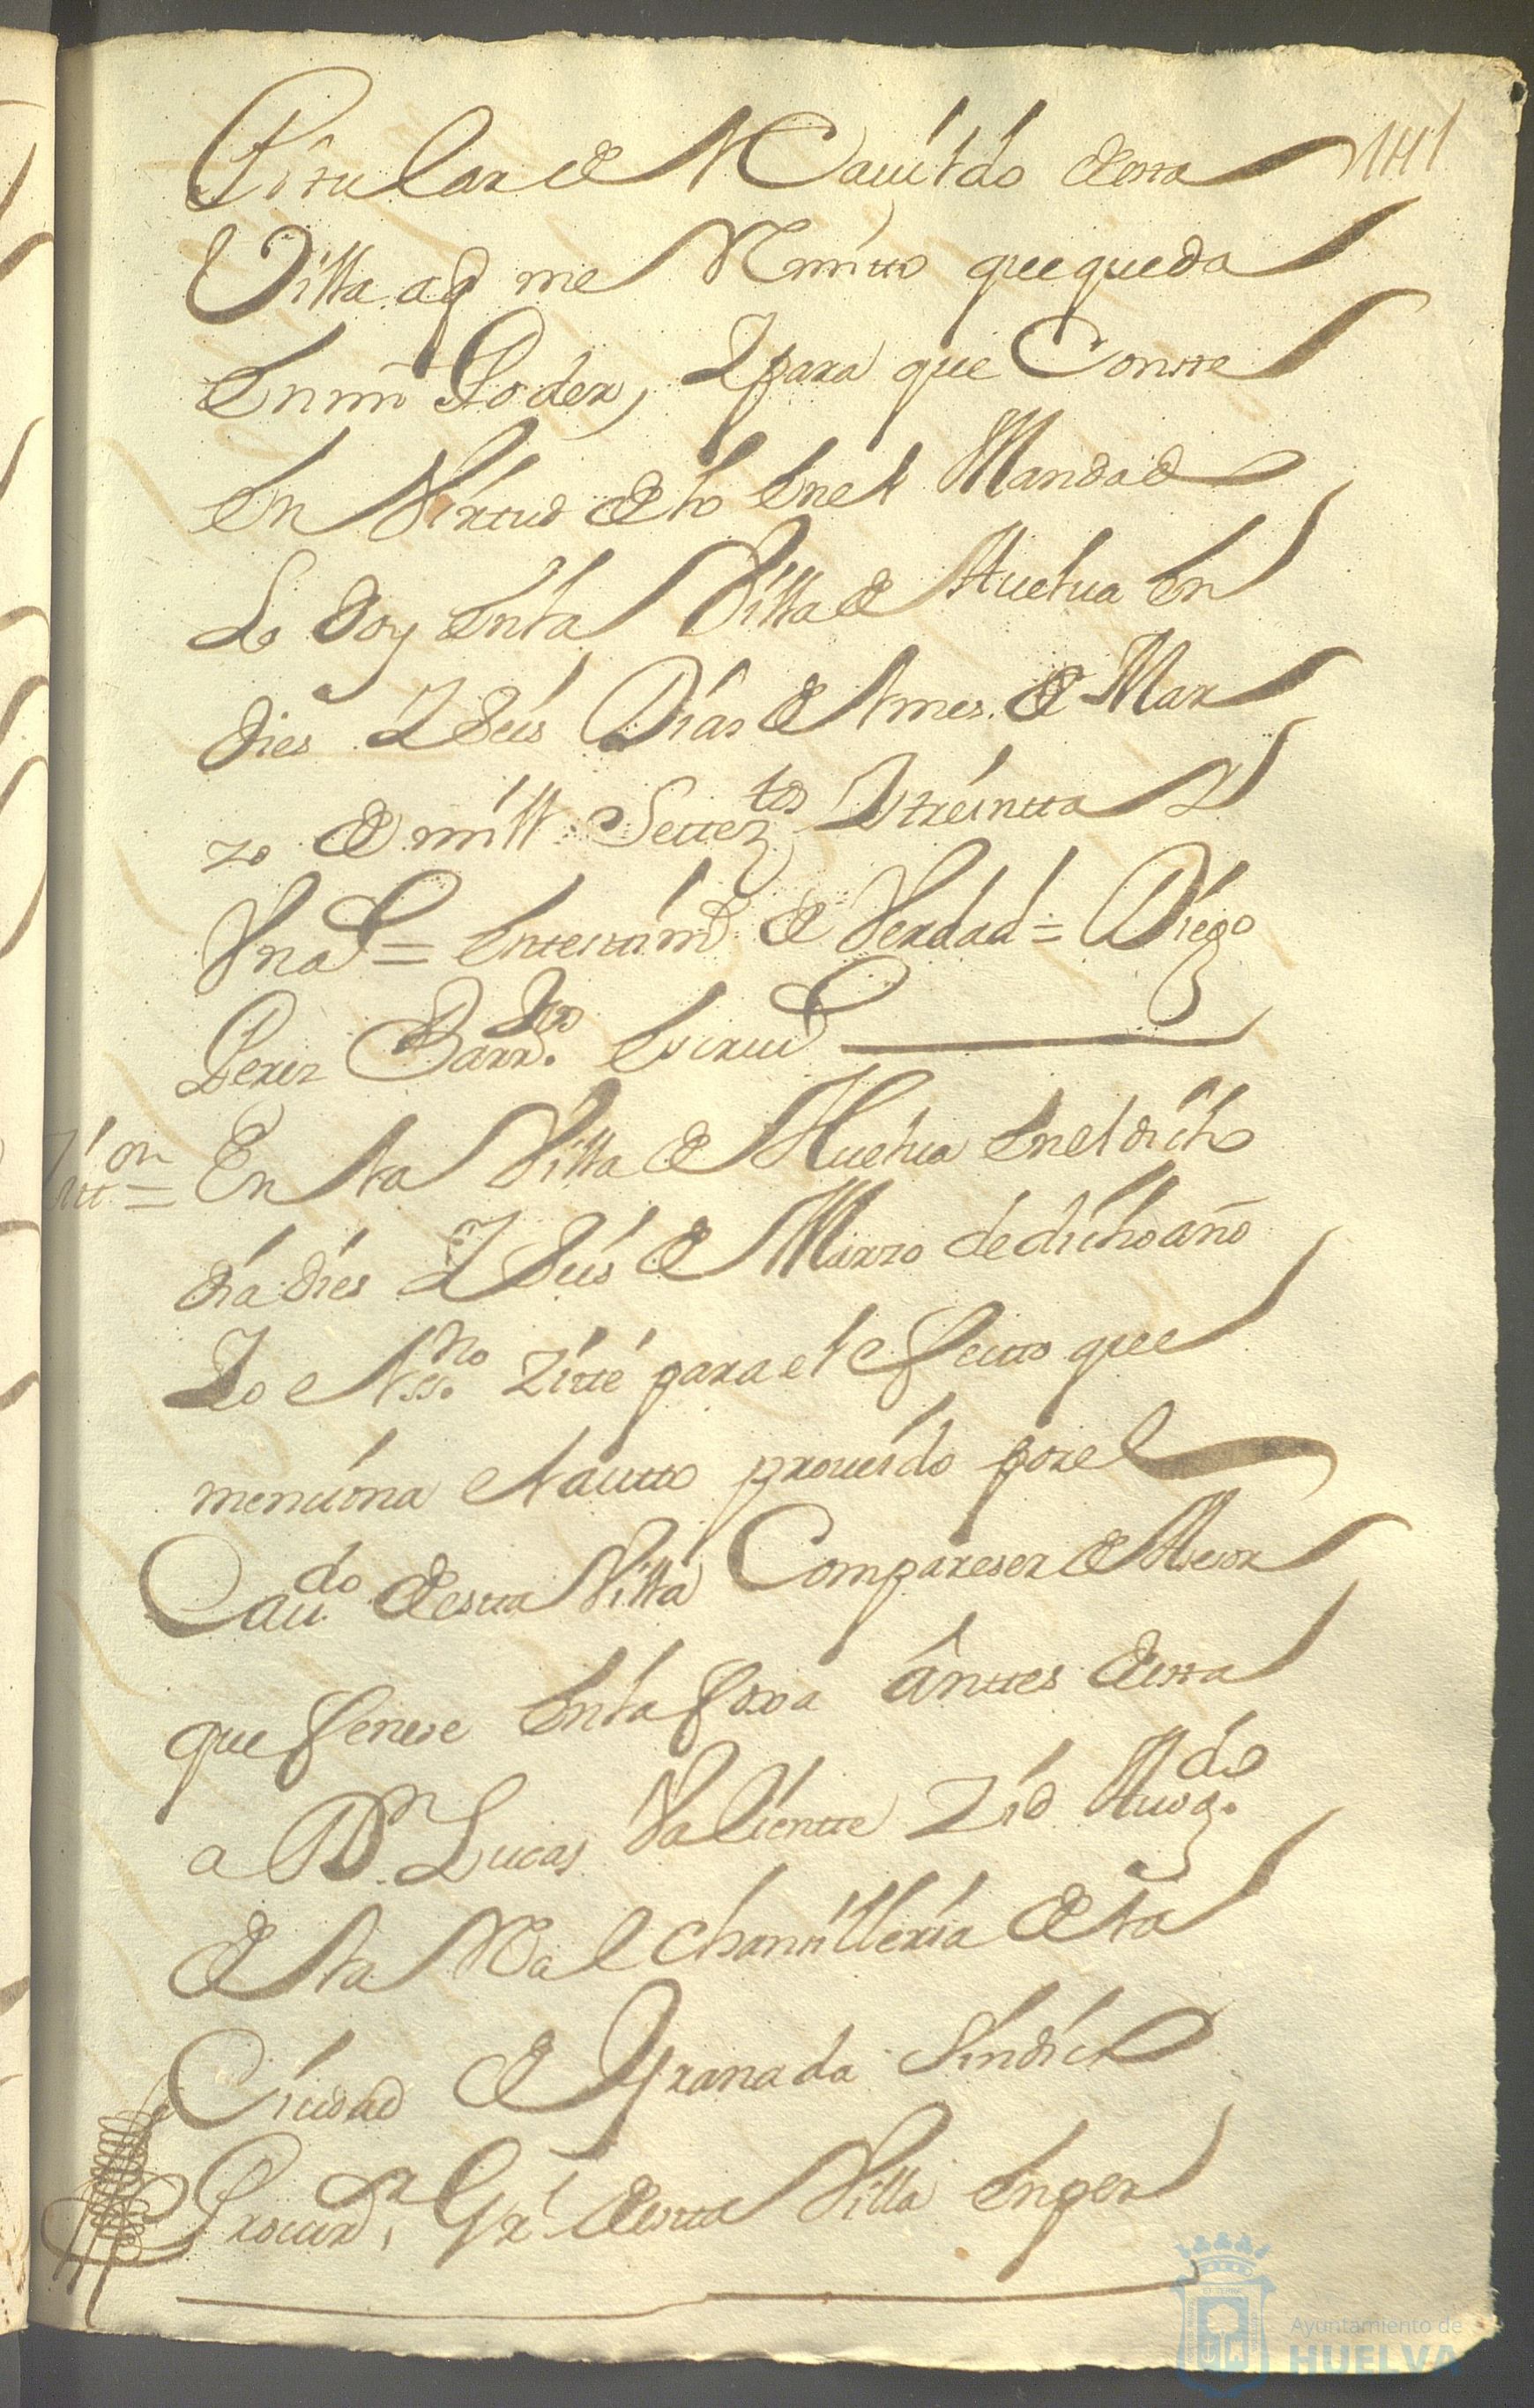 141
Titular del Cauildo desta
Villa aq me Remitto que queda
En mi Poder, Y para que Conste
En Virtud de lo En el Mandado
Lo doy En la Villa de Huelua En
dies Y Seis Dias del mes de Mar
zo de mill Settez.tos Y treintta Y
Vno = En testtim.º de Verdad = Diego
Perez Barr.º Escriu.º
Zitt.on = En la Villa de Huelua En el dicho
dia dies Y Seis de Marzo de dicho año
Yo el ss.no Zitté para el efectto que
menciona el autto proueido por el
Cau.do de estta Villa Compareser de Asesor
que fenese En la foxa antes desta
a Dn. Lucas Valientte Zid Auog.do
de la Real Chansilleria de la
Ciudad de Granada Sindico
Procur.or Gral de estta Villa En per
Ayuntamiento de
HUELVA